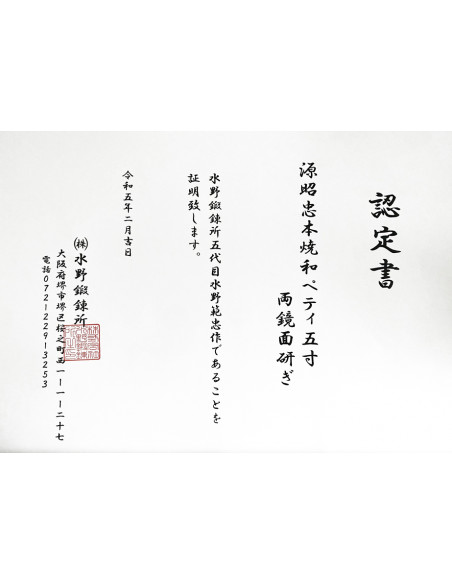 認定書
源昭忠本焼和ペティ五寸
両鏡面研ぎ
水野鍛錬所五代目水野範忠作であることを
証明致します。
令和五年二月吉日
㈱水野鍛錬所
大阪府堺市堺区桜之町西一ー一ー二十七
電話072-229-3253